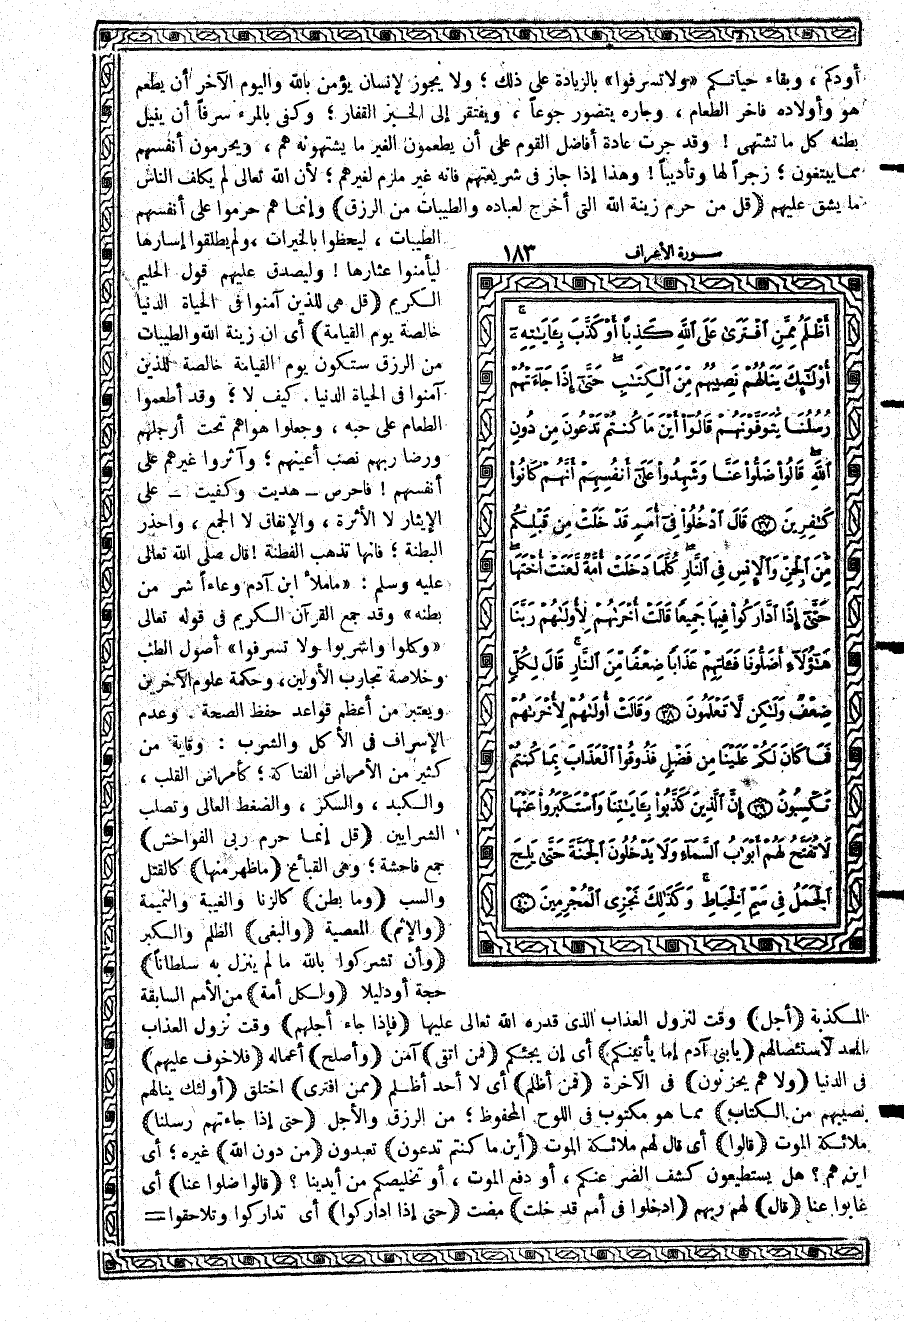 أودكم ، وبقاء حياتكم «ولا تسرفوا» بالزيادة على ذلك ؛ ولا يجوز لإنسان يؤمن بالله واليوم الآخر أن يطعم
هو وأولاده فاخر الطعام ، وجاره يتضور جوعاً ، ويفتقر إلى الخبز القفار ؛ وكفى بالمرء سرفاً أن ينيل
بطنه كل ما تشتهى ! وقد جرت عادة أفاضل القوم على أن يطعمون الغير ما يشتهونه هم ، ويحرمون أنفسهم
مما يبتغون ؛ زجراً لها وتأديباً ! وهذا إذا جاز فى شريعتهم فانه غير ملزم لغيرهم ؛ لأن الله تعالى لم يكلف الناس
ما يشق عليهم (قل من حرم زينة الله التى أخرج لعباده والطيبات من الرزق) وإنما هم حرموا على أنفسهم
الطيبات ، ليحظوا بالخيرات ، ولم يطلقوا إسارها
ليأمنوا عثارها ! وليصدق عليهم قول الحليم
الكريم (قل هى للذين آمنوا فى الحياة الدنيا
خالصة يوم القيامة) أى ان زينة الله والطيبات
من الرزق ستكون يوم القيامة خالصة للذين
آمنوا فى الحياة الدنيا . كيف لا ؛ وقد أطعموا
الطعام على حبه ، وجعلوا هواهم تحت أرجلهم
ورضا ربهم نصب أعينهم ؛ وآثروا غيرهم على
أنفسهم ! فاحرص ــ هديت وكفيت ــ على
الإيثار لا الأثرة ، والإنفاق لا الجمع ، واحذر
البطنة ؛ فانها تذهب الفطنة ! قال صلى الله تعالى
عليه وسلم : «ما ملأ ابن آدم وعاءاً شر من
بطنه» وقد جمع القرآن الكريم فى قوله تعالى
«وكلوا واشربوا ولا تسرفوا» أصول الطب
وخلاصة تجارب الأولين ، وحكمة علوم الآخرين
ويعتبر من أعظم قواعد حفظ الصحة . وعدم
الإسراف فى الأكل والشرب : وقاية من
كثير من الأمراض الفتاكة ؛ كأمراض القلب ،
والكبد ، والسكر ، والضغط العالى وتصلب
الشرايين (قل إنما حرم ربى الفواحش)
جمع فاحشة ؛ وهى القبائح (ماظهر منها) كالقتل
والسب (وما بطن) كالزنا والغيبة والنميمة
(والإثم) المعصية (والبغى) الظلم والكبر
(وأن تشركوا بالله ما لم ينزل به سلطاناً)
حجة أو دليلا (ولكل أمة) من الأمم السابقة
سورة الأعراف ١٨٣
أَظْلَمُ مِمَّنِ ٱفْتَرَىٰ عَلَى ٱللَّهِ كَذِبًا أَوْ كَذَّبَ بِـَٔايَـٰتِهِۦٓ ۚ
أُوْلَـٰٓئِكَ يَنَالُهُمْ نَصِيبُهُم مِّنَ ٱلْكِتَـٰبِ ۖ حَتَّىٰٓ إِذَا جَآءَتْهُمْ
رُسُلُنَا يَتَوَفَّوْنَهُمْ قَالُوٓاْ أَيْنَ مَا كُنتُمْ تَدْعُونَ مِن دُونِ
ٱللَّهِ ۖ قَالُواْ ضَلُّواْ عَنَّا وَشَهِدُواْ عَلَىٰٓ أَنفُسِهِمْ أَنَّهُمْ كَانُواْ
كَـٰفِرِينَ ٣٧ قَالَ ٱدْخُلُواْ فِىٓ أُمَمٍ قَدْ خَلَتْ مِن قَبْلِكُم
مِّنَ ٱلْجِنِّ وَٱلْإِنسِ فِى ٱلنَّارِ ۖ كُلَّمَا دَخَلَتْ أُمَّةٌ لَّعَنَتْ أُخْتَهَا ۖ
حَتَّىٰٓ إِذَا ٱدَّارَكُواْ فِيهَا جَمِيعًا قَالَتْ أُخْرَىٰهُمْ لِأُولَىٰهُمْ رَبَّنَا
هَـٰٓؤُلَآءِ أَضَلُّونَا فَـَٔاتِهِمْ عَذَابًا ضِعْفًا مِّنَ ٱلنَّارِ ۖ قَالَ لِكُلٍّ
ضِعْفٌ وَلَـٰكِن لَّا تَعْلَمُونَ ٣٨ وَقَالَتْ أُولَىٰهُمْ لِأُخْرَىٰهُمْ
فَمَا كَانَ لَكُمْ عَلَيْنَا مِن فَضْلٍ فَذُوقُواْ ٱلْعَذَابَ بِمَا كُنتُمْ
تَكْسِبُونَ ٣٩ إِنَّ ٱلَّذِينَ كَذَّبُواْ بِـَٔايَـٰتِنَا وَٱسْتَكْبَرُواْ عَنْهَا
لَا تُفَتَّحُ لَهُمْ أَبْوَٰبُ ٱلسَّمَآءِ وَلَا يَدْخُلُونَ ٱلْجَنَّةَ حَتَّىٰ يَلِجَ
ٱلْجَمَلُ فِى سَمِّ ٱلْخِيَاطِ ۚ وَكَذَٰلِكَ نَجْزِى ٱلْمُجْرِمِينَ ٤٠
المكذبة (أجل) وقت لنزول العذاب الذى قدره الله تعالى عليها (فإذا جاء أجلهم) وقت نزول العذاب
المعد لاستئصالهم (يابنى آدم إما يأتينكم) أى إن يجئكم (فمن اتقى) آمن (وأصلح) أعماله (فلا خوف عليهم)
فى الدنيا (ولا هم يحزنون) فى الآخرة (فمن أظلم) أى لا أحد أظلم (ممن افترى) اختلق (أولئك ينالهم
نصيبهم من الكتاب) مما هو مكتوب فى اللوح المحفوظ ؛ من الرزق والأجل (حتى إذا جاءتهم رسلنا)
ملائكة الموت (قالوا) أى قال لهم ملائكة الموت (أين ما كنتم تدعون) تعبدون (من دون الله) غيره ؛ أى
اين هم ؟ هل يستطيعون كشف الضر عنكم ، أو دفع الموت ، أو تخليصكم من أيدينا ؟ (قالوا ضلوا عنا) أى
غابوا عنا (قال) لهم ربهم (ادخلوا فى أمم قد خلت) مضت (حتى إذا اداركوا) أى تداركوا وتلاحقوا =